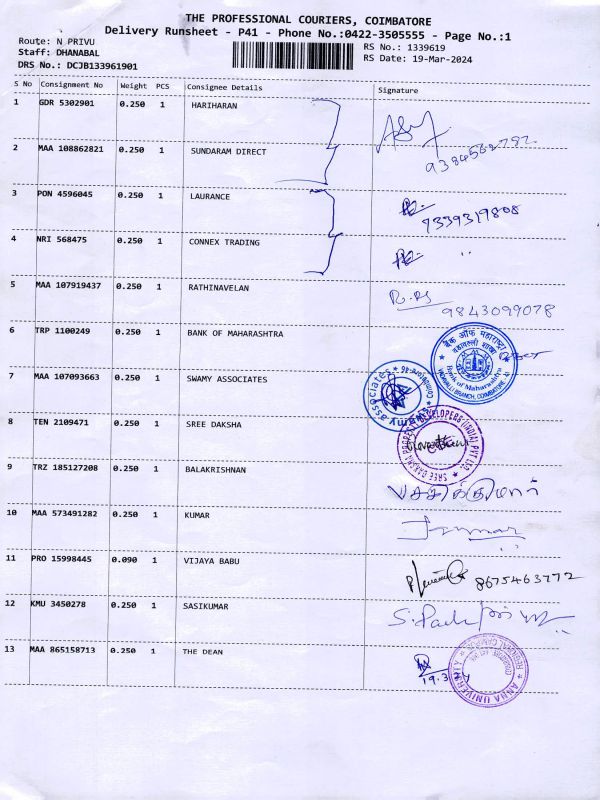 THE PROFESSIONAL COURIERS, COIMBATORE
Delivery Runsheet - P41 - Phone No.:0422-3505555 - Page No.:1
Route: N PRIVU
RS No.: 1339619
Staff: DHANABAL
RS Date: 19-Mar-2024
DRS No.: DCJB133961901
S No Consignment No Weight PCS Consignee Details Signature
1 GDR 5302901 0.250 1 HARIHARAN
2 MAA 108862821 0.250 1 SUNDARAM DIRECT
3 PON 4596045 0.250 1 LAURANCE
9339319808
4 NRI 568475 0.250 1 CONNEX TRADING
5 MAA 107919437 0.250 1 RATHINAVELAN
9843099078
6 TRP 1100249 0.250 1 BANK OF MAHARASHTRA
बैंक ऑफ महाराष्ट्र
Bank of Maharashtra
VADAVALLI BRANCH, COIMBATORE
7 MAA 107093663 0.250 1 SWAMY ASSOCIATES
Swamy associates Coimbatore
8 TEN 2109471 0.250 1 SREE DAKSHA
SREE DAKSHA PROPERTY DEVELOPERS (INDIA) PVT LTD.
9 TRZ 185127208 0.250 1 BALAKRISHNAN
10 MAA 573491282 0.250 1 KUMAR
11 PRO 15998445 0.090 1 VIJAYA BABU
8675463772
12 KMU 3450278 0.250 1 SASIKUMAR
13 MAA 865158713 0.250 1 THE DEAN
ANNA UNIVERSITY REGIONAL CAMPUS